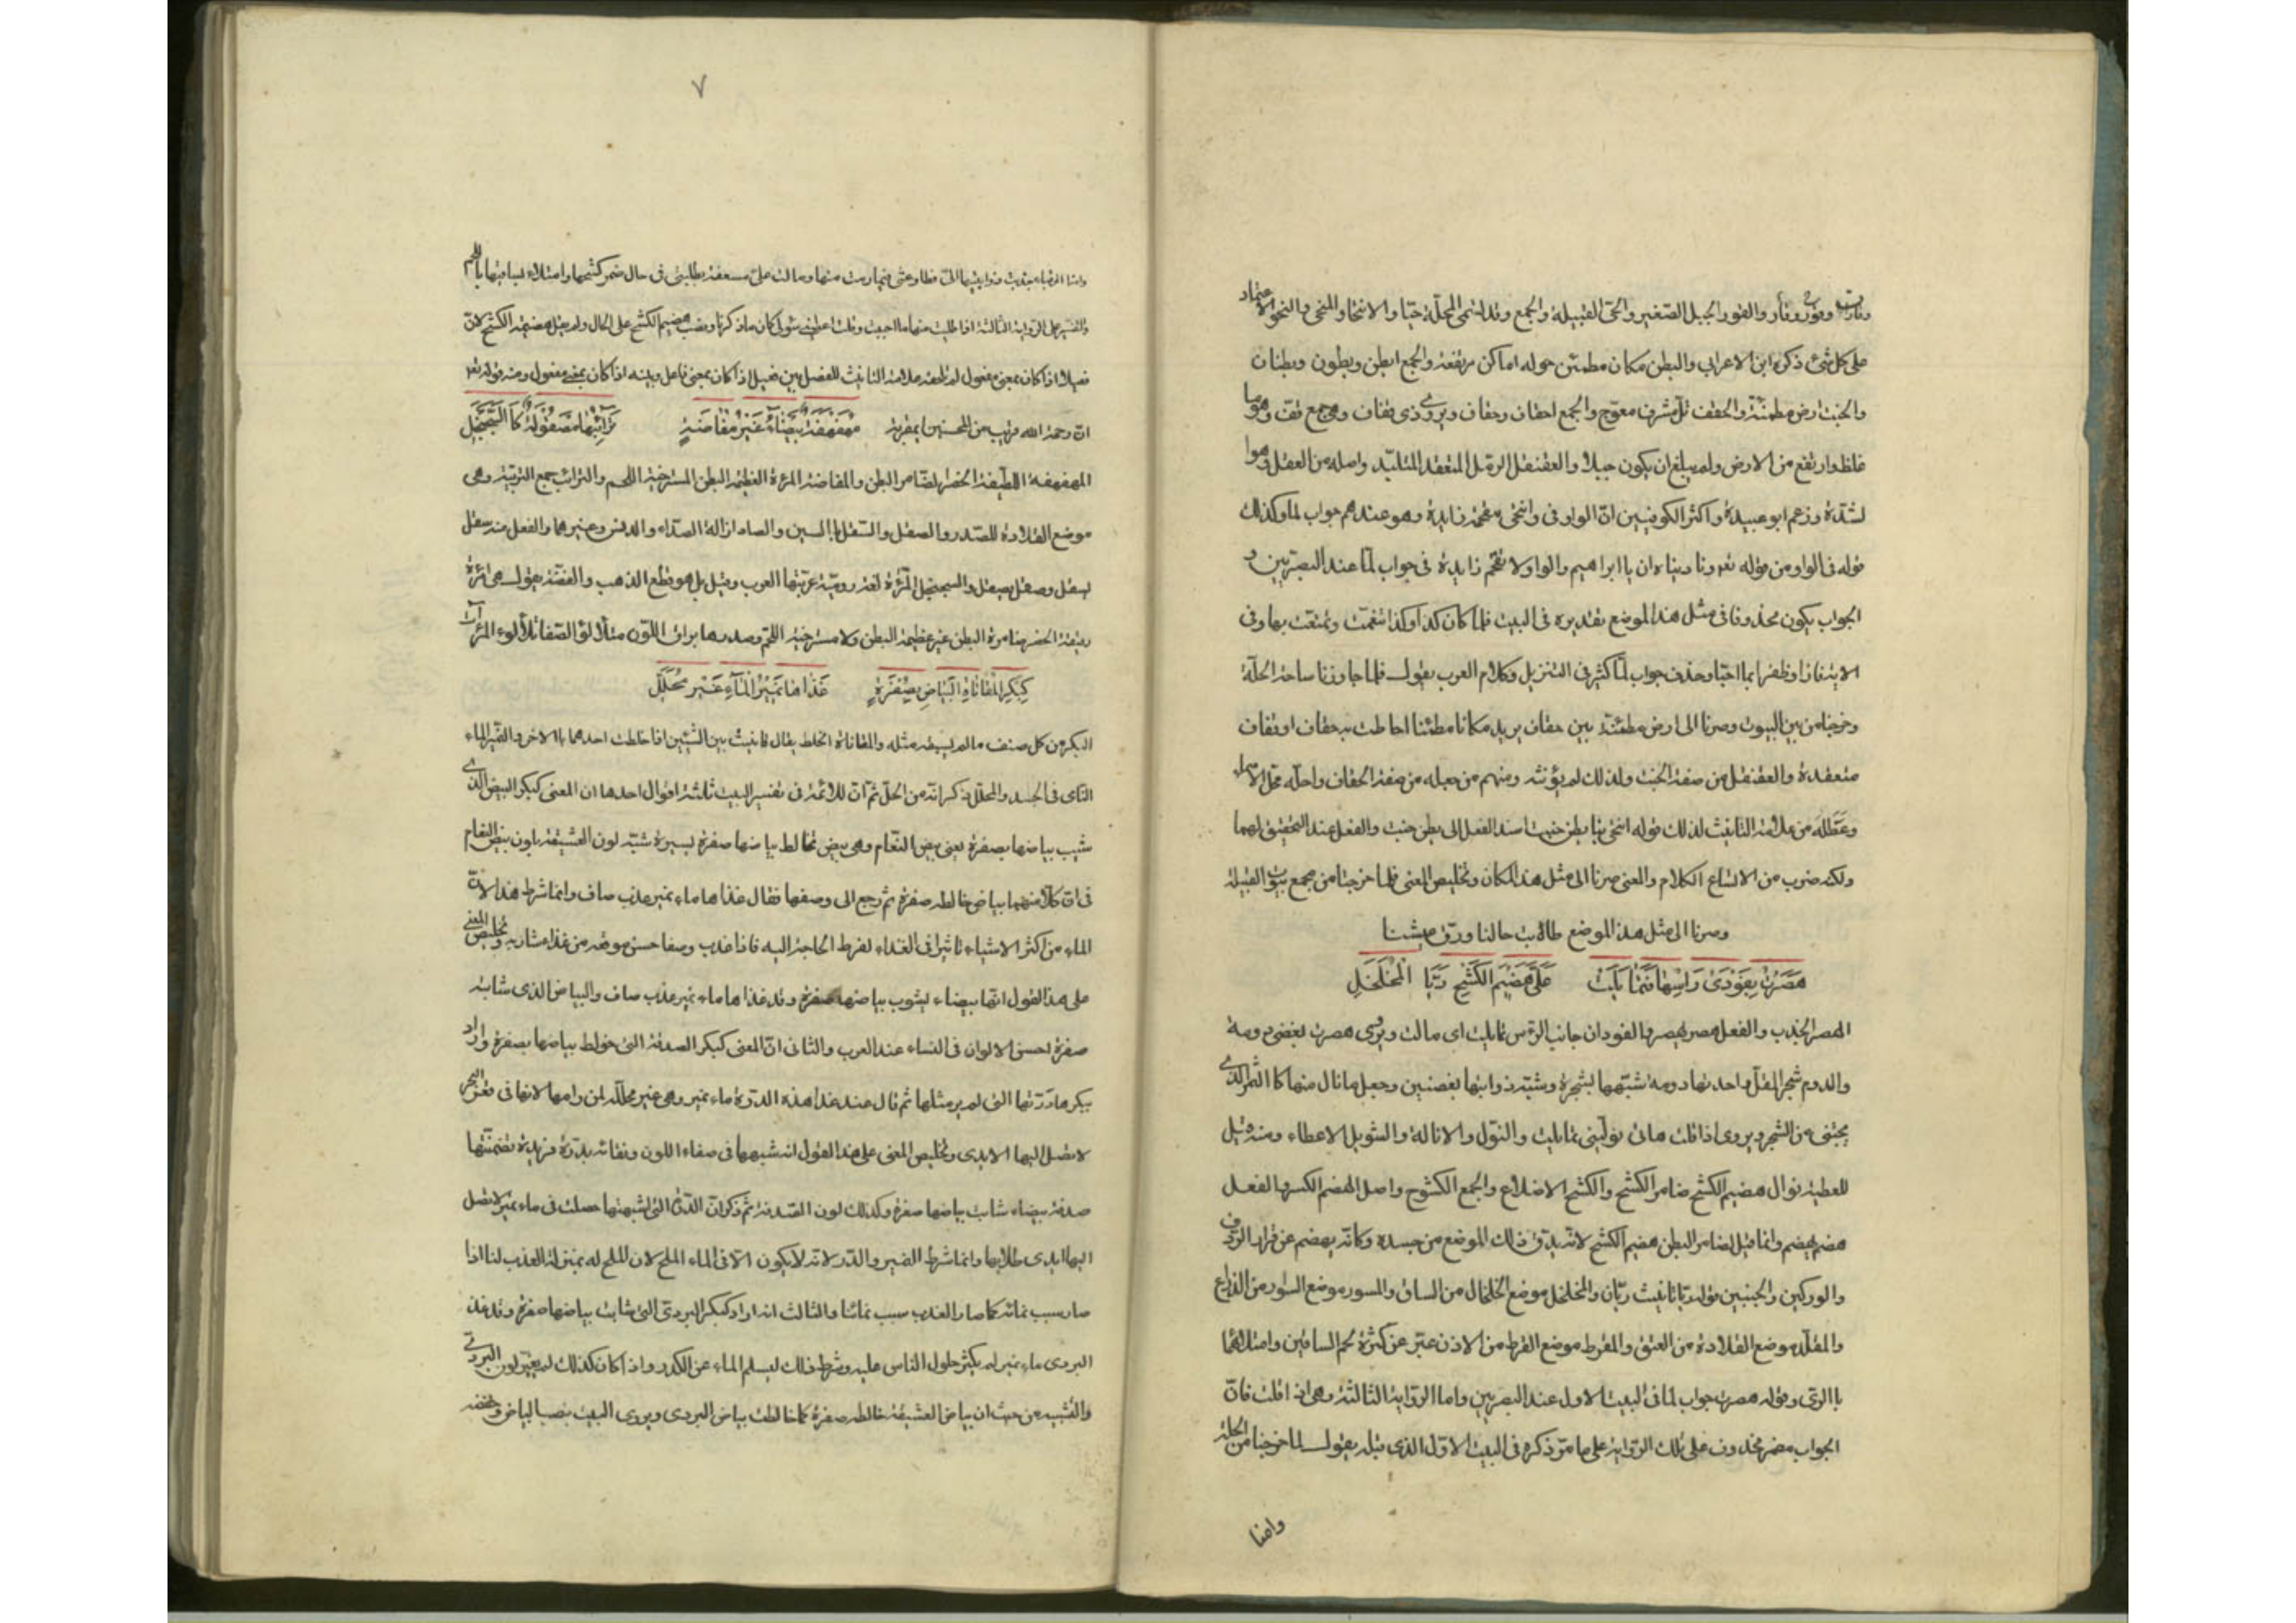 وقارات وقور وقار والقور الجبيل الصغير والحى القبيلة والجمع وقد تسمى المحلة حيا والانتحاء والتنحى والنحو الاعتماد
على كل شئ ذكره ابن الاعرابى والبطن مكان مطمئن حوله اماكن مرتفعة والجمع ابطن وبطون وبطنان
والخبت ارض مطمئنة والحقف تل مشرف معوج والجمع احقاف وحقاف ويروى ذى قفاف وهى جمع قف وهو ما
غلظ وارتفع من الارض ولم يبلغ ان يكون جبلا والعقنقل الرمل المنعقد المتلبد واصله من العقل وهو ا
لشدة وزعم ابو عبيدة واكثر الكوفيين ان الواو فى وانتحى مقحمة زايدة وهو عندهم جواب لما وكذلك
قوله فى الواو من قوله تعه وناديناه ان يا ابراهيم والواو لا تقحم زايدة فى جواب لما عند البصريين و
الجواب يكون محذوفا فى مثل هذا الموضع تقديره فى البيت فلما كان كذا وكذا تنعمت وتمتعت بها وفى
الاية فازا وظفرا بما احبا وحذف جواب لما كثير فى التنزيل وكلام العرب يقول فلما جاوزنا ساحة الحلة
وخرجنا من بين البيوت وصرنا الى ارض مطمئنة بين حقاف يريد مكانا مطمئنا احاطت به حقاف او قفاف
منعقدة والعقنقل من صفة الخبت ولذلك لم يؤنثه ومنهم من جعله من صفة الحقاف واحله محل الاسماء
وعطله من علامة التانيث لذلك قوله انتحى بنا بطن خبت اسند الفعل الى بطن خبت والفعل عند التحقيق لهما
ولكنه ضرب من الاتساع الكلام والمعنى صرنا الى مثل هذا المكان وتخليص المعنى فلما خرجنا من مجمع بيوت القبيلة
وصرنا الى مثل هذا الموضع طالت حالنا ورق عيشنا
هَصَرْتُ بِفَوْدَىْ رَاسِهَا فَتَمَايَلَتْ عَلَىَّ هَضِيمَ الكَشْحِ رَيَّا الْمُخَلْخَلِ
الهصر الجذب والفعل هصر يهصر والفودان جانبا الراس تمايلت اى مالت ويروى هصرت بغصنى دومة
والدوم شجر المقل واحدتها دومة شبهها بشجرة وشبه ذوابتيها بغصنين وجعل ما نال منها كا الثمر الذى
يجتنى من الشجر ويروى اذا قلت هاتى نولينى تمايلت والنول والانالة والتنويل الاعطاء ومنه قيل
للعطية نوال هضيم الكشح ضامر الكشح والكشح الاضلاع والجمع الكشوح واصل الهضم الكسر والفعل
هضم يهضم وانما قيل لضامر البطن هضيم الكشح لانه يدق ذلك الموضع من جسده وكانه يهضم عن قرار الردف
والوركين والجنبين قوله ريا تانيث ريان والمخلخل موضع الخلخال من الساق والمسور موضع السوار من الذراع
والمقلد موضع القلادة من العنق والمقرط موضع القرط من الاذن عبر عن كثرة لحم الساقين وامتلائهما
با الرى وقوله هصرت جواب لما فى البيت الاول عند البصريين واما الرواية الثالثة وهى اذا قلت فان
الجواب مضمر محذوف على تلك الرواية على ما مر ذكره فى البيت الاول الذى قبله يقول لما خرجنا من الحلة
وامنا
٧
وامنا الرقباء جذبت ذوابتيها الىّ فطاوعتنى فيما رمت منها ومالت علىّ مسعفة بطلبتى فى حال ضمر كشحيها وامتلاء ساقيها با للحم
والتفسير على الرواية الثالثة اذا طلبت منها ما احببت وقلت اعطينى سولى كان ما ذكرنا ونصب هضيم الكشح على الحال ولم يقل هضيمة الكشح لان
فعيلا اذا كان بمعنى مفعول لم تلحقه علامة التانيث للفصل بين فعيل اذا كان بمعنى فاعل وبينه اذا كان بمعنى مفعول ومنه قوله تعه
ان رحمة الله قريب من المحسنين اى مقربة مُهَفْهَفَةٌ بَيْضَآءُ غَيْرُ مُفَاضَةٍ تَرَائِبُهَا مَصْقُولَةٌ كَا السَّجَنْجَلِ
المهفهفة اللطيفة الخصر الضامر البطن والمفاضة المرءة العظيمة البطن المسترخية اللحم والترائب جمع التريبة وهى
موضع القلادة للصدر والصقل والسقل با السين والصاد ازالة الصداء والدنس وغيرهما والفعل منه سقل
يسقل وصقل يصقل والسجنجل المرءة لغة رومية عربتها العرب وقيل بل هو قطع الذهب والفضة يقول هى امرءة
دقيقة الخصر ضامرة البطن غير عظيمة البطن ولا مسترخية اللحم وصدرها براق اللون متلالؤ الصفا تلألؤ المرآت
كَبِكْرِ الْمُقَانَاةِ الْبَيَاضِ بِصُفْرَةٍ غَذَاهَا نَمِيْرُ الْمَآءِ غَيْرَ مُحَلَّلِ
البكر من كل صنف ما لم يسبقه مثله والمقاناة الخلط يقال قانيت بين الشيئين اذا خلطت احدهما با الاخر والنمير الماء
النامى فى الجسد والمحلل ذكر انه من الحل ثم ان للائمة فى تفسير البيت ثلثة اقوال احدها ان المعنى كبكر البيض الذى
شيب بياضها بصفرة يعنى بيض النعام وهى بيض تخالط بياضها صفرة يسيرة شبه لون العشيقة بلون بيض النعام
فى ان كلا منهما بياض خالطه صفرة ثم رجع الى وصفها فقال غذاها ماء نمير عذب صاف وانما شرط هذا لان
الماء من اكثر الاشياء تاثيرا فى الغذاء لفرط الحاجة اليه فاذا عذب وصفا حسن موقعه من غذا مشاربه وتخليص المعنى
على هذا القول انها بيضاء يشوب بياضها صفرة وقد غذاها ماء نمير عذب صاف والبياض الذى شابته
صفرة احسن الالوان فى النساء عند العرب والثانى ان المعنى كبكر الصدفة التى خولط بياضها بصفرة واراد
ببكرها درتها التى لم ير مثلها ثم قال عند غذا هذه الدرة ماء نمير وهى غير محللة لمن رامها لانها فى قعر البحر
لا تصل اليها الايدى وتخليص المعنى على هذا القول انه شبهها فى صفاء اللون ونقائه بدرة فريدة تضمنتها
صدفة بيضاء شابت بياضها صفرة وكذلك لون الصدفة ثم ذكر ان الدرة التى اشبهتها حصلت فى ماء نمير لا تصل
اليها ايدى طلابها وانما شرط النمير والدر لانه لا يكون الا فى الماء الملح لان الملح له بمنزلة العذب لنا اذا
صار سبب نمائه كما صار العذب سبب نمائنا والثالث انه اراد كبكر البردى التى شابت بياضها صفرة وقد غذ
البردى ماء نمير لم يكثر حلول الناس عليه وشرط ذلك ليسلم الماء عن الكدر واذا كان كذلك لم يغير لون البردى
والتشبيه من حيث ان بياض العشيقة خالطه صفرة كما خالطت بياض البردى ويروى البيت بنصب البياض وخفضه